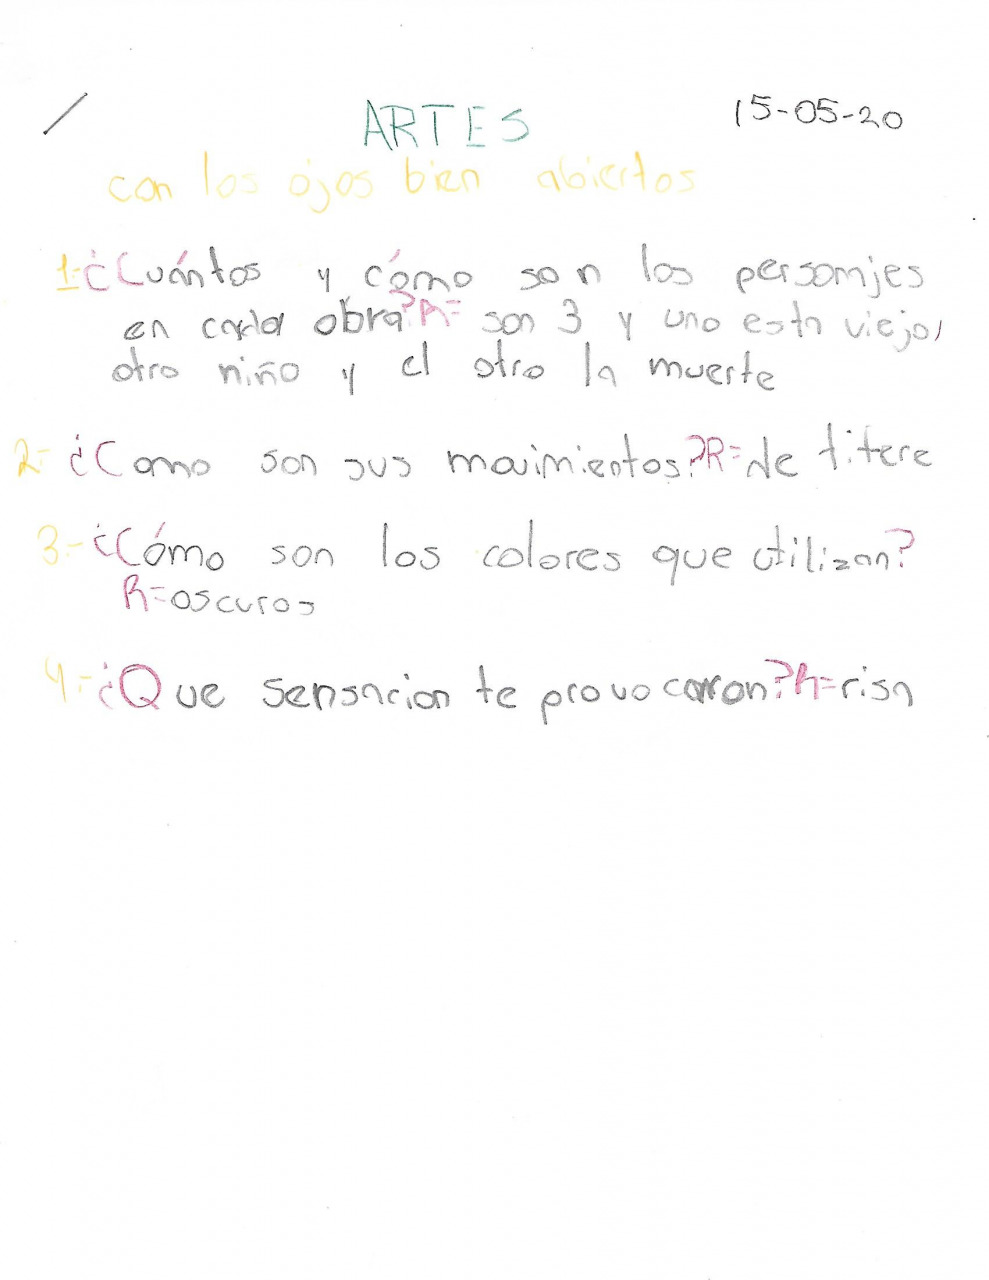 ARTES 15-05-20
con los ojos bien abiertos
1.- ¿Cuántos y cómo son los persomjes
en cada obra? R= son 3 y uno esta viejo,
otro niño y el otro la muerte
2.- ¿Como son sus movimientos? R= de titere
3.- ¿Cómo son los colores que utilizan?
R= oscuros
4.- ¿Que sensacion te provocaron? R= risa